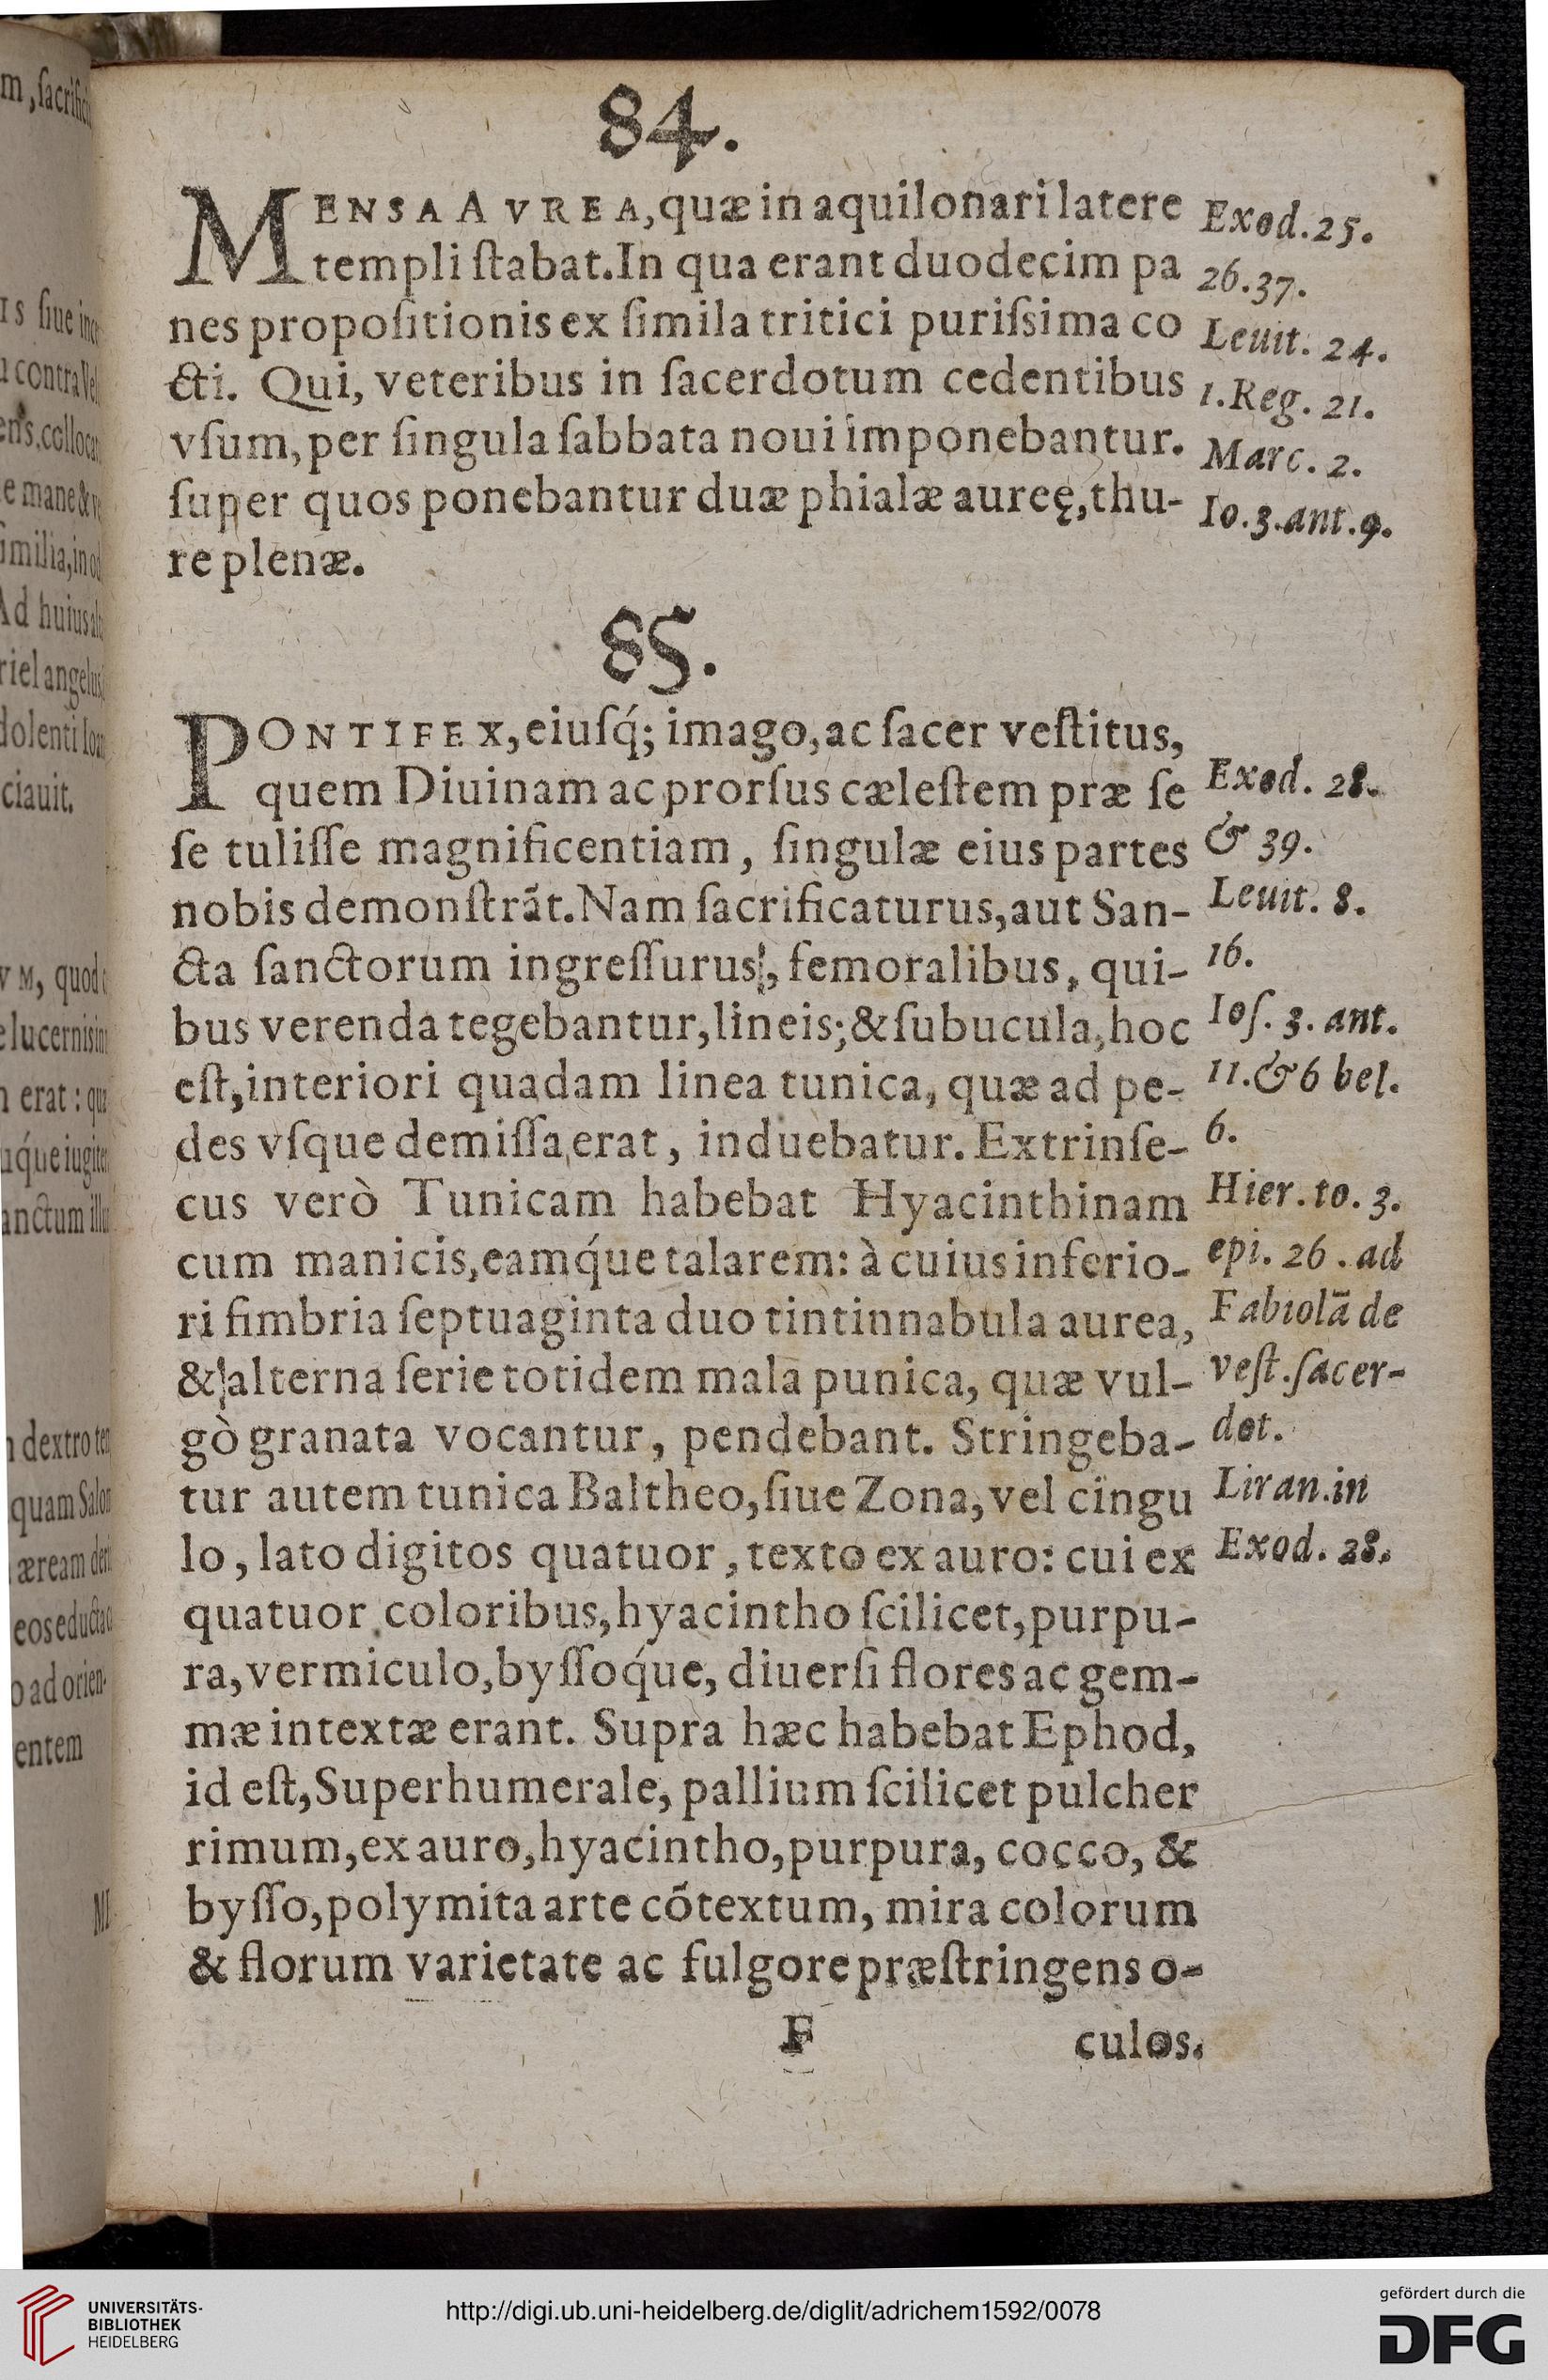 84.
MENSA AVREA, quæ in aquilonari latere
templi ſtabat. In qua erant duodecim pa
nes propoſitionis ex ſimila tritici puriſsima co
cti. Qui, veteribus in ſacerdotum cedentibus
vſum, per ſingula ſabbata noui imponebantur.
ſuper quos ponebantur duæ phialæ aureę, thu-
re plenæ.
Exod.25.
26.37.
Leuit. 24.
1.Reg. 21.
Marc. 2.
Io.3.ant.9.
85.
PONTIFEX, eiuſq́; imago, ac ſacer veſtitus,
quem Diuinam ac prorſus cæleſtem præ ſe
ſe tuliſſe magnificentiam, ſingulæ eius partes
nobis demonſtrãt. Nam ſacrificaturus, aut San-
cta ſanctorum ingreſſurus, femoralibus, qui-
bus verenda tegebantur, lineis; & ſubucula, hoc
eſt, interiori quadam linea tunica, quæ ad pe-
des vſque demiſſa erat, induebatur. Extrinſe-
cus verò Tunicam habebat Hyacinthinam
cum manicis, eamq́ue talarem: à cuius inferio-
ri fimbria ſeptuaginta duo tintinnabula aurea,
& alterna ſerie totidem mala punica, quæ vul-
gò granata vocantur, pendebant. Stringeba-
tur autem tunica Baltheo, ſiue Zona, vel cingu
lo, lato digitos quatuor, texto ex auro: cui ex
quatuor coloribus, hyacintho ſcilicet, purpu-
ra, vermiculo, byſſoq́ue, diuerſi flores ac gem-
mæ intextæ erant. Supra hæc habebat Ephod,
id eſt, Superhumerale, pallium ſcilicet pulcher
rimum, ex auro, hyacintho, purpura, cocco, &
byſſo, polymita arte cõtextum, mira colorum
& florum varietate ac fulgore præſtringens o-
Exod. 28.
& 39.
Leuit. 8.
16.
Ioſ. 3. ant.
11.&6 bel.
6.
Hier. to. 3.
epi. 26. ad
Fabiolã de
veſt. ſacer-
dot.
Liran.in
Exod. 28.
F
culos.
m, ſacrifici
ſiue
contra
collo
e mane &
milia, in
Ad huius
riel angelus
dolenti
ciauit.
VM, quod
lucernis
erat: qu
iugite
anctum
dextro
quam
æream
eos educta
ad orien-
entem
UNIVERSITÄTS-
BIBLIOTHEK
HEIDELBERG
http://digi.ub.uni-heidelberg.de/diglit/adrichem1592/0078
gefördert durch die
DFG